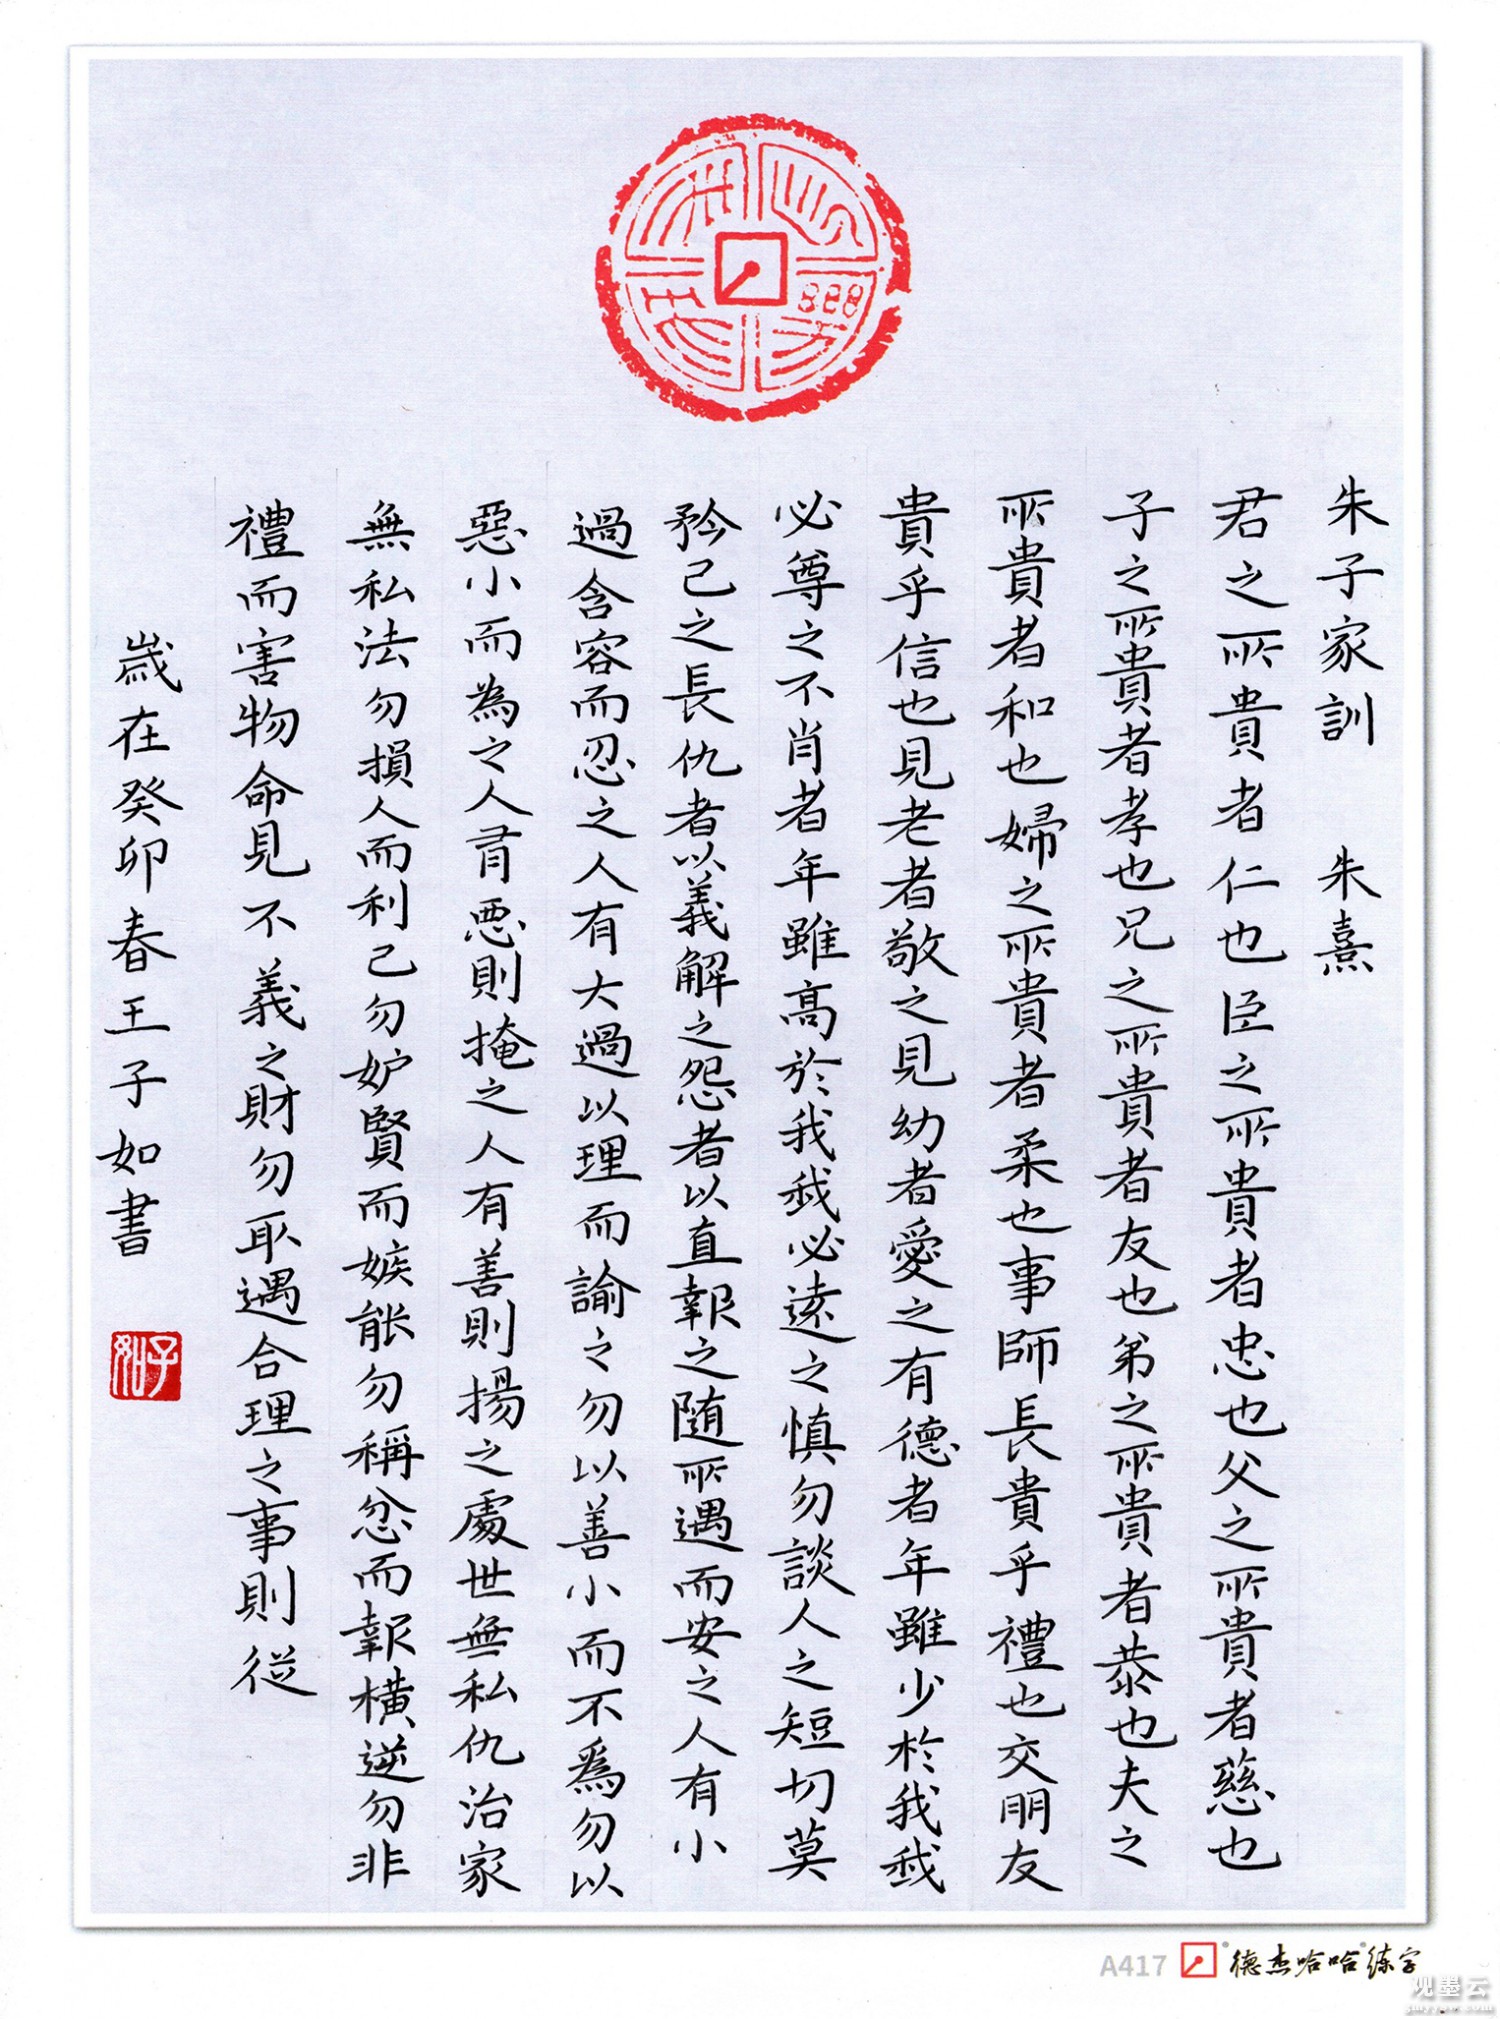 朱子家訓 朱熹
君之所貴者仁也臣之所貴者忠也父之所貴者慈也
子之所貴者孝也兄之所貴者友也弟之所貴者恭也夫之
所貴者和也婦之所貴者柔也事師長貴乎禮也交朋友
貴乎信也見老者敬之見幼者愛之有德者年雖少於我我
必尊之不肖者年雖高於我我必遠之慎勿談人之短切莫
矜己之長仇者以義解之怨者以直報之随所遇而安之人有小
過含容而忍之人有大過以理而諭之勿以善小而不為勿以
惡小而為之人有惡則掩之人有善則揚之處世無私仇治家
無私法勿損人而利己勿妒賢而嫉能勿稱忿而報橫逆勿非
禮而害物命見不義之財勿取遇合理之事則從
歲在癸卯春王子如書
子如
A417 德杰哈哈练字
观墨云